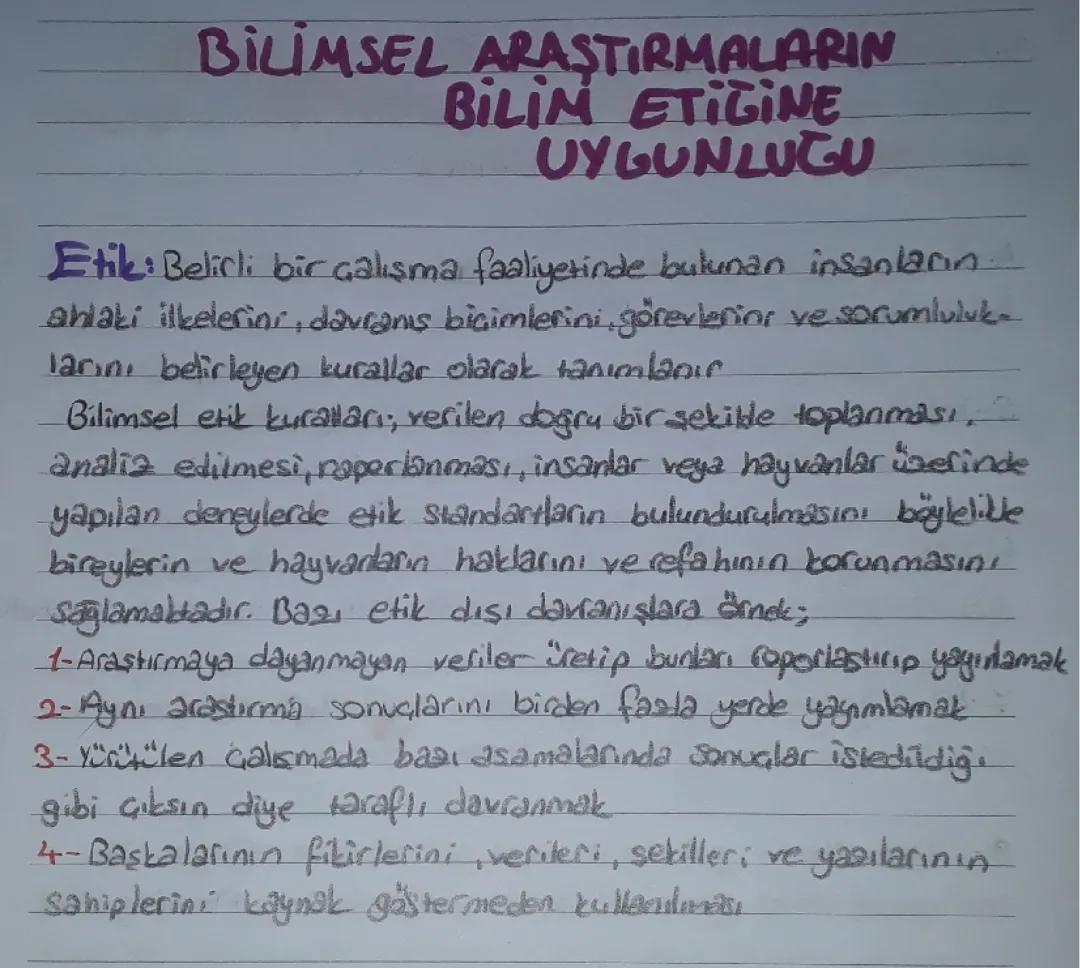 BİLİMSEL ARAŞTIRMALARIN
BİLİM ETİĞİNE
UYGUNLUĞU
Etik: Belirli bir çalışma faaliyetinde bulunan insanların
ahlaki ilkelerini, davranış biçimlerini, görevlerini ve sorumluluk-
larını belirleyen kurallar olarak tanımlanır
Bilimsel etik kuralları; verilen doğru bir şekilde toplanması,
analiz edilmesi, raporlanması, insanlar veya hayvanlar üzerinde
yapılan deneylerde etik standartların bulundurulmasını böylelikle
bireylerin ve hayvanların haklarını ve refahının korunmasını
sağlamaktadır. Bazı etik dışı davranışlara örnek;
1-Araştırmaya dayanmayan veriler üretip bunları raporlaştırıp yayınlamak
2- Aynı araştırma sonuçlarını birden fazla yerde yayımlamak
3- Yürütülen çalışmada bazı aşamalarında sonuçlar istedildiği
gibi çıksın diye taraflı davranmak
4- Başkalarının fikirlerini, verileri, şekilleri ve yazılarının
sahiplerini kaynak göstermeden kullanılması